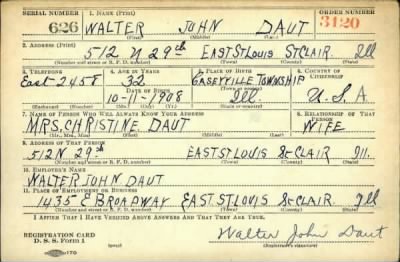 SERIAL NUMBER 1. NAME (Print) ORDER NUMBER
626 WALTER JOHN DAUT 3120
(First) (Middle) (Last)
2. ADDRESS (Print)
512 N 29th EAST ST LOUIS ST CLAIR. Ill
(Number and street or R. F. D. number) (Town) (County) (State)
3. TELEPHONE 4. AGE IN YEARS 5. PLACE OF BIRTH 6. COUNTRY OF CITIZENSHIP
East 2458 32 CASEYVILLE TOWNSHIP
DATE OF BIRTH (Town or county)
10-11-1908 Ill. U.S.A
(Exchange) (Number) (Mo.) (Day) (Yr.) (State or country)
7. NAME OF PERSON WHO WILL ALWAYS KNOW YOUR ADDRESS 8. RELATIONSHIP OF THAT PERSON
MRS, CHRISTINE DAUT WIFE
(Mr., Mrs., Miss) (First) (Middle) (Last)
9. ADDRESS OF THAT PERSON
512 N 29th EAST ST LOUIS St CLAIR Ill.
(Number and street or R. F. D. number) (Town) (County) (State)
10. EMPLOYER'S NAME
WALTER JOHN DAUT
11. PLACE OF EMPLOYMENT OR BUSINESS
1435 E BROADWAY EAST. ST. LOUIS St CLAIR. Ill
(Number and street or R. F. D. number) (Town) (County) (State)
I AFFIRM THAT I HAVE VERIFIED ABOVE ANSWERS AND THAT THEY ARE TRUE.
REGISTRATION CARD
D. S. S. Form 1 (over) Walter John Daut
(Registrant's signature)